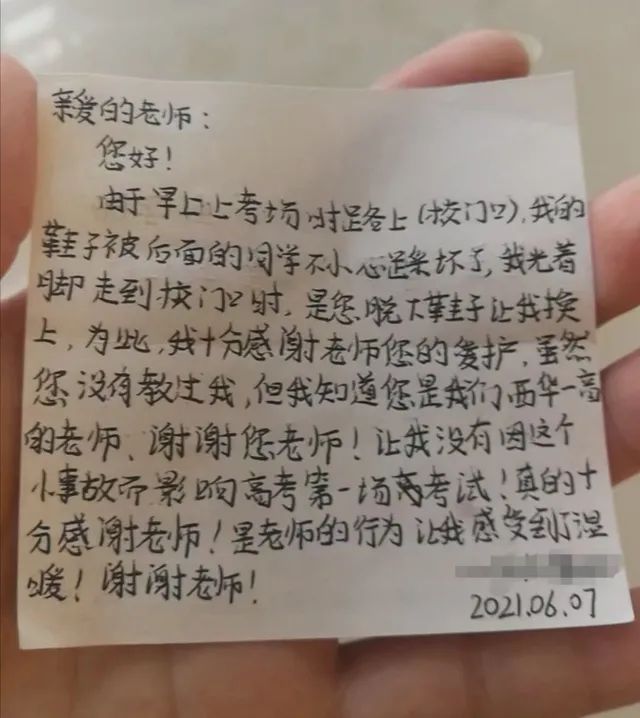 亲爱的老师：
您好！
由于早上上考场时路上（校门口），我的
鞋子被后面的同学不小心踩坏了，我光着
脚走到校门口时，是您脱下鞋子让我换
上，为此，我十分感谢老师您的爱护，虽然
您没有教过我，但我知道您是我们西华一高
的老师、谢谢您老师！让我没有因这个
小事故而影响高考第一场考试！真的十
分感谢老师！是老师的行为让我感受到了温
暖！谢谢老师！
2021.06.07